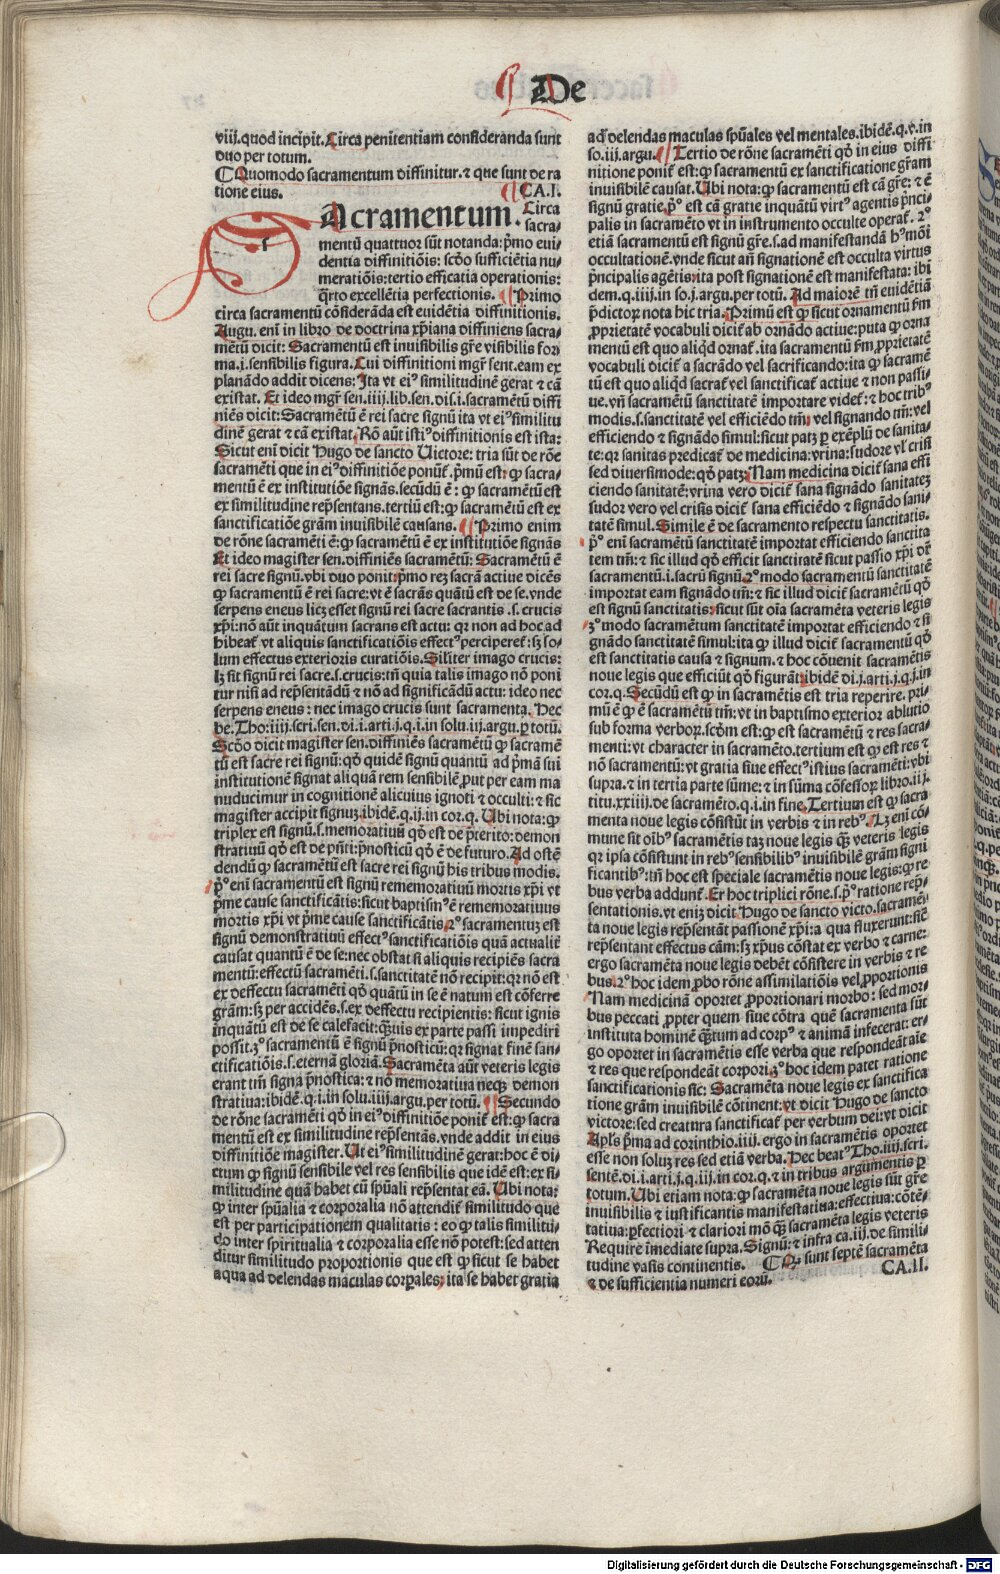 De
viij. quod incipit. Circa penitentiam consideranda sunt
duo per totum.
Quomodo sacramentum diffinitur. ⁊ que sunt de ra
tione eius. CA.I.
ſ Acramentum. Circa
sacra⸗
mentū quattuor sūt notanda: p̄mo eui⸗
dentia diffinitiōis: scḋo sufficiētia nu⸗
meratiōis: tertio efficatia operationis:
q̄rto excellētia perfectionis. Primo
circa sacramentū cōsiderāda est euidētia diffinitionis.
Augu. eni in libro de doctrina xp̄iana diffiniens sacra⸗
mētū dicit: Sacramentū est inuisibilis gr̄e visibilis for
ma. i. sensibilis figura. Cui diffinitioni mgr̄ sent. eam ex
planādo addit dicens: Ita vt ei⁹ similitudinē gerat ⁊ cā
existat. Et ideo mgr̄ sen. iiij. lib. sen. dis. i. sacramētū diffi
niēs dicit: Sacramētū ē rei sacre signū ita vt ei⁹ similitu
dinē gerat ⁊ cā existat. Rō aūt isti⁹ diffinitionis est ista:
Sicut eni dicit Hugo de sancto Uictore: tria sūt de rōe
sacramēti que in ei⁹ diffinitiōe ponūt̄. p̄mū est: ꝙ sacra⸗
mentū ē ex institutiōe signās. secūdū ē: ꝙ sacramētū est
ex similitudine rep̄sentans. tertiū est: ꝙ sacramētū est ex
sanctificatiōe grām inuisibilē causans. Primo enim
de rōne sacramēti ē: ꝙ sacramētū ē ex institutiōe signās
Et ideo magister sen. diffiniēs sacramētū: Sacramētū ē
rei sacre signū. vbi duo ponit: p̄mo reꝫ sacrā actiue dicēs
ꝙ sacramentū ē rei sacre: vt ē sacrās quātū est de se. vnde
serpens eneus licꝫ esset signū rei sacre sacrantis .s. crucis
xp̄i: nō aūt inquātum sacrans est actu: qr non ad hoc ad
hibeat̄ vt aliquis sanctificatiōis effect⁹ perciperet: sꝫ so⸗
lum effectus exterioris curatiōis. Siliter imago crucis:
lꝫ sit signū rei sacre. s. crucis: tn̄ quia talis imago nō poni
tur nisi ad rep̄sentādū ⁊ nō ad significādū actu: ideo nec
serpens eneus: nec imago crucis sunt sacramenta. Hec
be. Tho: iiij. scri. sen. di. i. arti. j. q. i. in solu. iij. argu. ꝑ totū.
Scḋo dicit magister sen. diffiniēs sacramētū ꝙ sacramē
tū est sacre rei signū: qḋ quidē signū quantū ad p̄mā sui
institutionē signat aliquā rem sensibilē prout per eam ma
nuducimur in cognitionē alicuius ignoti ⁊ occulti: ⁊ sic
magister accipit signuꝫ. ibidē. q. ij. in cor. q. Ubi nota: ꝙ
triplex est signū. s. memoratiuū qḋ est de p̄terito: demon
stratiuū qḋ est de pn̄ti: p̄nosticū qḋ ē de futuro. Ad ostē
dendū ꝙ sacramētū est sacre rei signū his tribus modis.
p̄⁰ eni sacramentū est signū rememoratiuū mortis xp̄i vt
p̄me cause sanctificātis: sicut baptism⁹ ē rememoratiuus
mortis xp̄i vt p̄me cause sanctificātis. 2⁰ sacramentuꝫ est
signū demonstratiuū effect⁹ sanctificatiōis quā actualit̄
causat quantū ē de se: nec obstat si aliquis recipiēs sacra
mentū: effectū sacramēti. s. sanctitatē nō recipit: qr nō est
ex deffectu sacramēti qḋ quātū in se ē natum est cōferre
grām: sꝫ per accidēs. s. ex deffectu recipientis: sicut ignis
inquātū est de se calefacit: q̄uis ex parte passi impediri
possit. 3⁰ sacramentū ē signū p̄nosticū: qr signat finē san⸗
ctificatiōis. s. eternā gloriā. Sacramēta aūt veteris legis
erant tm̄ signa p̄nostica: ⁊ nō memoratiua necꝫ demon
stratiua: ibidē. q. i. in solu. iiij. argu. per totū. Secundo
de rōne sacramēti qḋ in ei⁹ diffinitiōe ponit̄ est: ꝙ sacra
mentū est ex similitudine rep̄sentās. vnde addit in eius
diffinitiōe magister. Ut ei⁹ similitudinē gerat: hoc ē di⸗
ctum ꝙ signū sensibile vel res sensibilis que idē est: ex si⸗
militudine quā habet cū sp̄uali rep̄sentat eā. Ubi nota:
ꝙ inter sp̄ualia ⁊ corporalia nō attendit̄ similitudo que
est per participationem qualitatis: eo ꝙ talis similitu⸗
do inter spiritualia ⁊ corporalia esse nō potest: sed atten
ditur similitudo proportionis que est ꝙ sicut se habet
aqua ad delendas maculas corꝑales, ita se habet gratia
ad delendas maculas sp̄uales vel mentales. ibidē. q. v. in
so. iij. argu. Tertio de rōne sacramēti qḋ in eius diffi
nitione ponit̄ est: ꝙ sacramentū ex sanctificatiōe gr̄am
inuisibilē causat. Ubi nota: ꝙ sacramentū est cā gr̄e: ⁊ ē
signū gratie. p̄⁰ est cā gratie inquātū virt⁹ agentis p̄nci⸗
palis in sacramēto vt in instrumento occulte operat̄. 2⁰
etiā sacramentū est signū gr̄e. s. ad manifestandā h⁹mōi
occultationē. vnde sicut an̄ signationē est occulta virtus
p̄ncipalis agētis: ita post signationē est manifestata: ibi
dem. q. iiij. in so. j. argu. per totū. Ad maiorē tn̄ euidētiā
p̄dictoꝝ nota hic tria. Primū est ꝙ sicut ornamentū fm̄
ꝓprietatē vocabuli dicit̄ ab ornādo actiue: puta ꝙ orna
mentū est quo aliqḋ ornat̄. ita sacramentū fm̄ ꝓprietatē
vocabuli dicit̄ a sacrādo vel sacrificando: ita ꝙ sacramē
tū est quo aliqḋ sacrat̄ vel sanctificat̄ actiue ⁊ non passi⸗
ue. vn̄ sacramētū sanctitatē importare videt̄: ⁊ hoc trib⁹
modis. s. sanctitatē vel efficiēdo tm̄: vel signando tm̄: vel
efficiendo ⁊ signādo simul: sicut patꝫ ꝑ exēplū de sanita⸗
te: qr sanitas predicat̄ de medicina: vrina: sudore vl̄ crisi
sed diuersimode: qḋ patꝫ. Nam medicina dicit̄ sana effi
ciendo sanitatē: vrina vero dicit̄ sana signādo sanitateꝫ
sudor vero vel crisis dicit̄ sana efficiēdo ⁊ signādo sani⸗
tatē simul. Simile ē de sacramento respectu sanctitatis.
p̄⁰ eni sacramētū sanctitatē importat efficiendo sanctita
tem tm̄: ⁊ sic illud qḋ efficit sanctitatē sicut passio xp̄i dr̄
sacramentū. i. sacrū signū. 2⁰ modo sacramentū sanctitatē
importat eam signādo tm̄: ⁊ sic illud dicit̄ sacramētū qḋ
est signū sanctitatis: sicut sūt oīa sacramēta veteris legis
3⁰ modo sacramētum sanctitatē importat efficiendo ⁊ si
gnādo sanctitatē simul: ita ꝙ illud dicit̄ sacramentū qḋ
est sanctitatis causa ⁊ signum. ⁊ hoc cōuenit sacramētis
noue legis que efficiūt qḋ figurāt: ibidē di. j. arti. j. q. j. in
cor. q. Secūdū est ꝙ in sacramētis est tria reperire. pri⸗
mū ē ꝙ ē sacramētū tm̄: vt in baptismo exterior ablutio
sub forma verboꝝ. scḋm est: ꝙ est sacramētū ⁊ res sacra⸗
menti: vt character in sacramēto. tertium est ꝙ est res ⁊
nō sacramentū: vt gratia siue effect⁹ istius sacramēti: vbi
supra. ⁊ in tertia parte sūme: ⁊ in sūma cōfessoꝝ libro. iij.
titu. xxiiij. de sacramēto. q. i. in fine. Tertium est ꝙ sacra
menta noue legis cōsistūt in verbis ⁊ in reb⁹. Lꝫ eni cō⸗
mune sit oīb⁹ sacramētis taꝫ noue legis q̄ꝫ veteris legis
qr ipsa cōsistunt in reb⁹ sensibilib⁹ inuisibilē grām signi
ficantib⁹: tn̄ hoc est speciale sacramētis noue legis: ꝙ re
bus verba addunt̄. Et hoc triplici rōne. s. p̄⁰ ratione rep̄⸗
sentationis. vt eniꝫ dicit Hugo de sancto victo. sacramē⸗
ta noue legis rep̄sentāt passionē xp̄i: a qua fluxerunt: sic̄
rep̄sentant effectus cām: sꝫ xp̄us cōstat ex verbo ⁊ carne:
ergo sacramēta noue legis debēt cōsistere in verbis ⁊ re
bus. 2⁰ hoc idem ꝓbo rōne assimilatiōis vel ꝓportionis
Nam medicinā oportet ꝓportionari morbo: sed mor⸗
bus peccati ꝓpter quem siue cōtra quē sacramenta sūt
instituta hominē q̄tum ad corp⁹ ⁊ animā infecerat: er⸗
go oportet in sacramētis esse verba que respondeāt aīe
⁊ res que respondeāt corpori. 3⁰ hoc idem patet ratione
sanctificationis sic: Sacramēta noue legis ex sanctifica
tione grām inuisibilē cōtinent: vt dicit Hugo de sancto
victore: sed creatura sanctificat̄ per verbum dei: vt dicit
Apl̄s p̄ma ad corinthio. iiij. ergo in sacramētis oportet
esse non soluꝫ res sed etiā verba. Hec beat⁹ Tho. iiij. scri.
sentē. di. i. arti. j. q. iij. in cor. q. ⁊ in tribus argumentis ꝑ
totum. Ubi etiam nota: ꝙ sacramēta noue legis sūt gr̄e
inuisibilis ⁊ iustificantis manifestatiua: effectiua: cōtē⸗
tatiua: ꝑfectiori ⁊ clariori mō q̄ꝫ sacramēta legis veteris
Require īmediate supra. Signū: ⁊ infra ca. iij. de simili⸗
tudine vasis continentis. Q sunt septē sacramēta
⁊ de sufficientia numeri eorū. CA.II.
Digitalisierung gefördert durch die Deutsche Forschungsgemeinschaft - DFG